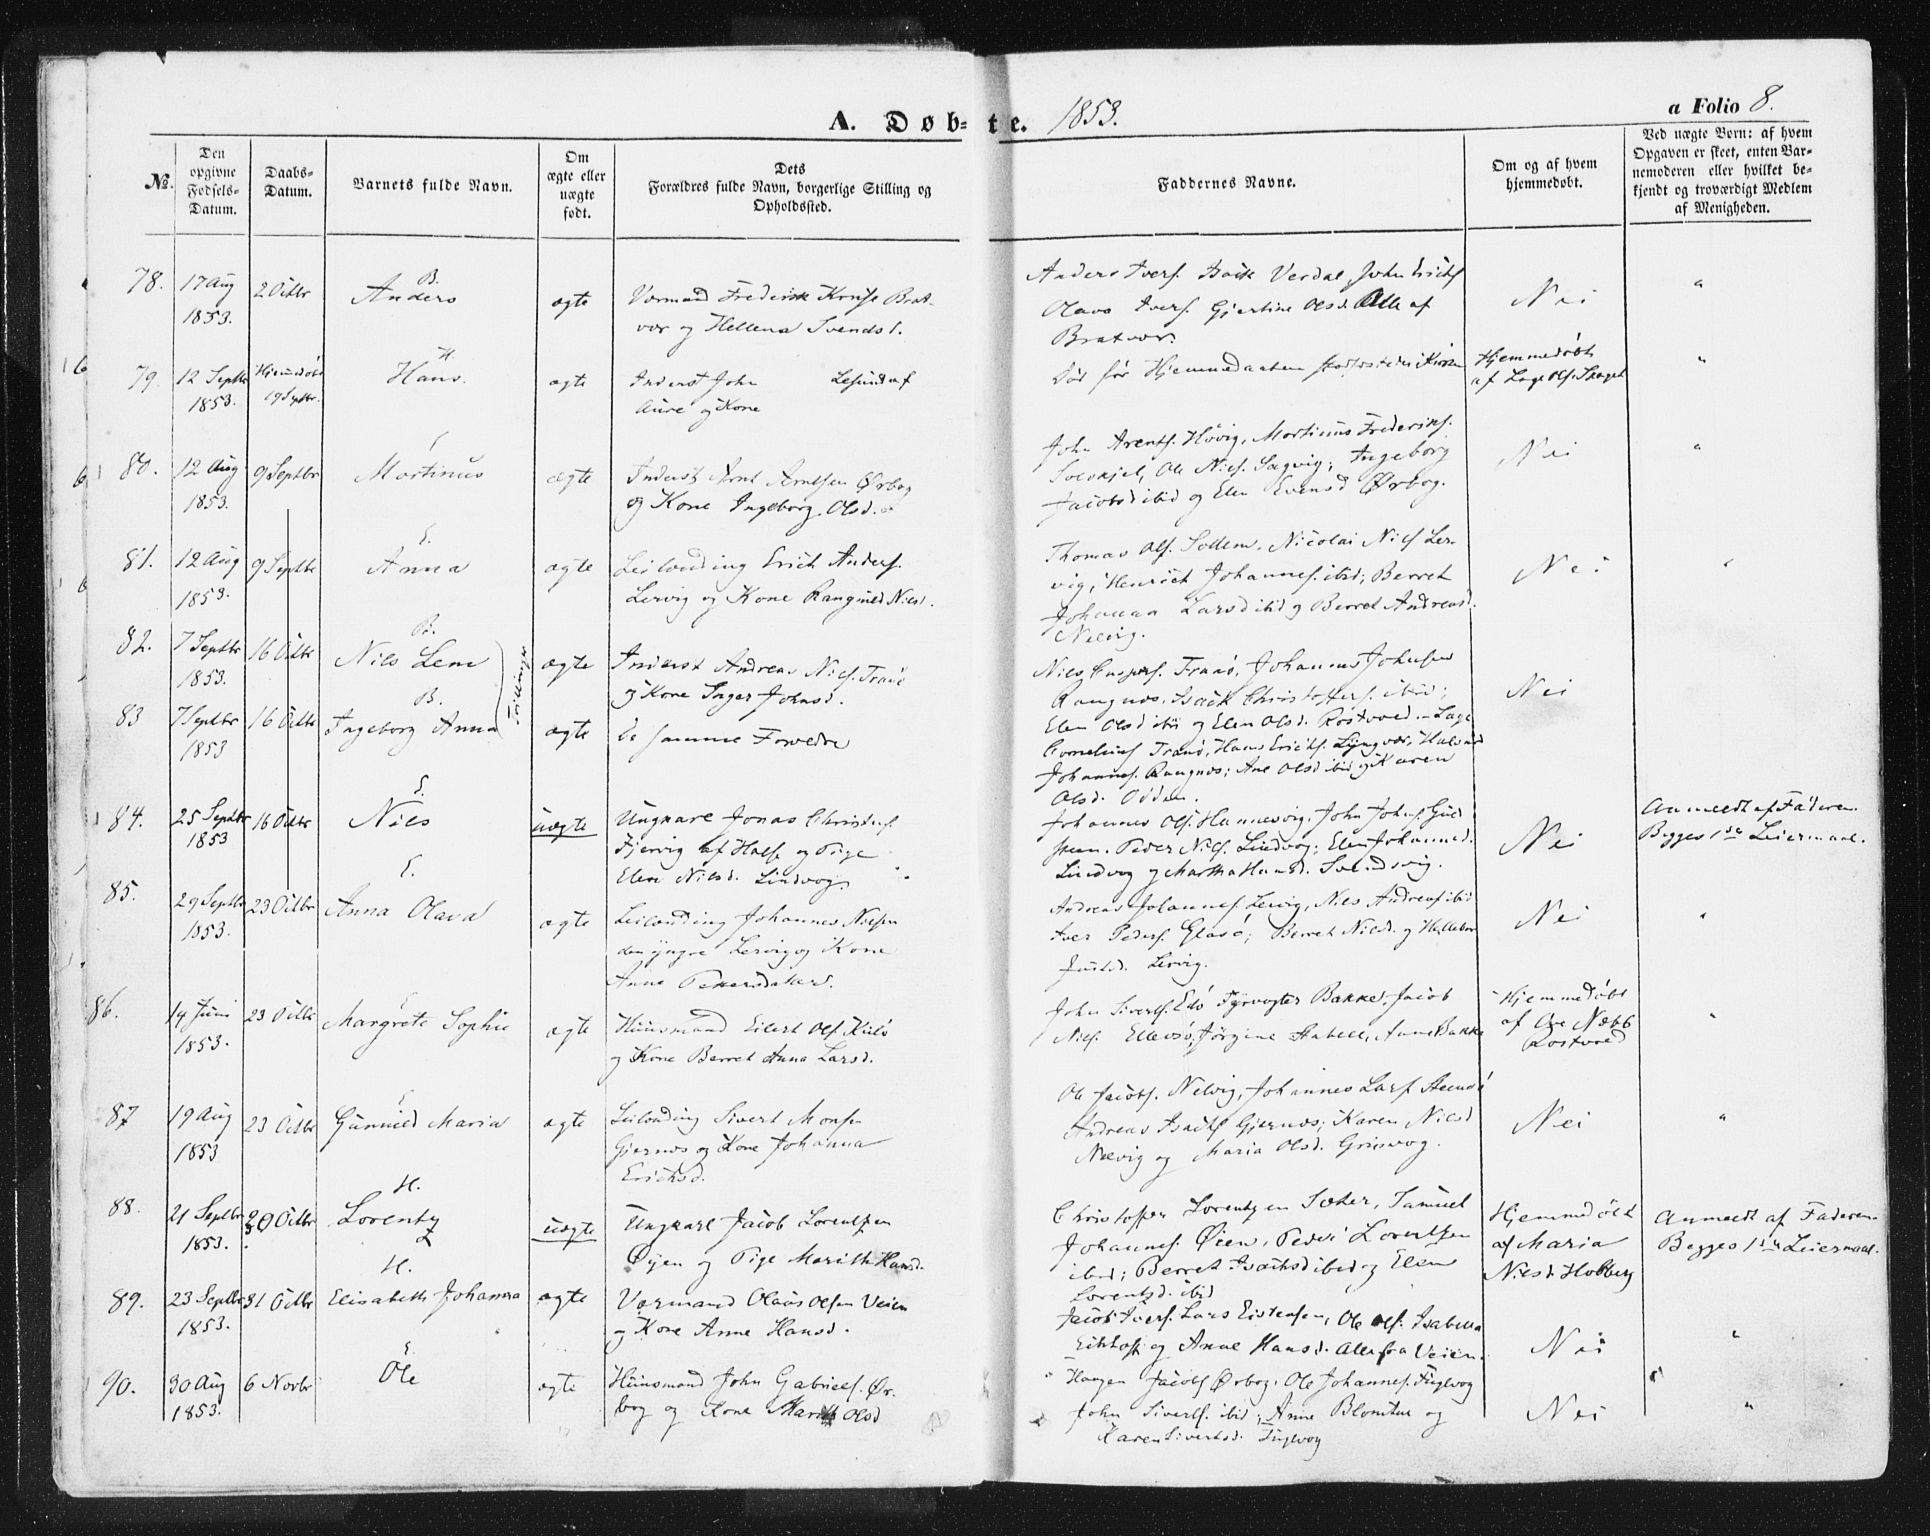 A. Døb- te. 1853.
a Folio 8.
No.
Den opgivne Fødsels-Datum.
Daabs-Datum.
Barnets fulde Navn.
Om ægte eller uægte født.
Dets Forældres fulde Navn, borgerlige Stilling og Opholdssted.
Faddernes Navne.
Om og af hvem hjemmedøbt.
Ved uægte Børn: af hvem Opgaven er skeet, enten Barnemoderen eller hvilket bekjendt og troværdigt Medlem af Menigheden.
78. 17 Aug 1853. 2 Octbr
B.
Anders
ægte
Vormand Frederik Krusse Brat-
vær og Hellena Svends d.
Anders Ivers. Isach Verdal, John Erichs.
Olava Ivers. Gjertine Olsd. Alle af
Bratvær.
Nei
"
79. 12 Septbr 1853. Hjemmedøbt 19 Septbr.
H.
Hans.
ægte
Inderst John Lesund af
Aure og Kone
Død før Hjemmedaaben stadfæstedes i Kirken
Hjemmedøbt
af Lage Ols. Skaget
"
80. 12 Aug 1853. 9 Septbr
E.
Mortinus
ægte
Inderst Arnt Arntsen Ørbog
og Kone Ingeborg Olsd.
John Arents. Høvig, Mortinus Frederiks.
Solskjel, Ole Niels. Sagvig; Ingeborg
Jacobsd ibid og Elen Evensd Ørbog.
Nei
"
81. 12 Aug 1853. 9 Septbr
E.
Anna
ægte
Leilending Erich Anders.
Lervig og Kone Rangnild Nielsd.
Thomas Ols. Sollem, Nicolai Niels Ler-
vig, Henrich Johannes. ibid; Berret
Johanna Larsd ibid og Berret Andreasd.
Nelvig.
Nei
"
82. 7 Septbr 1853. 16 Octbr
B.
Nils Lene
Tvillinger
ægte
Inderst Andreas Niels. Tranø
og Kone Inger Johnsd.
Niels Caspers. Tranø, Johannes Johnsen
Rangnæs, Isach Christoffers. ibid;
Elen Olsd ibid og Elen Olsd. Rostvoed. – Lage
Nei
83 7 Septbr 1853 16 Octbr
B.
Ingeborg Anna
ægte
de samme Forældre
Cornelius Tranø, Hans Erichs. Lyngvær, Halvard
Johannes. Rangnæs; Ane Olsd ibid og Karen
Olsd. Odden.
84. 25 Septbr 1853 16 Octbr
E.
Niels
uægte
Ungkarl Jonas Christens.
Fjervig af Halse og Pige
Elen Nielsd. Lindvog.
Johannes Ols. Hannesvig, John Johns. Gul
steen. Peder Niels. Lindvog; Elen Johannesd.
Lindvog og Martha Hansd. Svendsvig.
Nei
Anmeldt af Faderen.
Begges 1ste Leiermaal.
85. 29 Septbr 1853. 23 Octbr
E.
Anna Olava
ægte
Leilending Johannes Nielsen
den yngre Lervig og Kone
Anne Pedersdatter.
Andreas Johannes. Lervig, Niels Andreas ibid
Iver Peders. Glasø; Berret Nielsd. og Hellebor
Justsd. Lervig.
Nei
"
86. 14 Juni 1853. 23 Octbr
E.
Margrete Sophie
ægte
Huusmand Eilert Ols. Kielø
og Kone Berret Anna Larsd.
John Siverts. Edø Fyrvogter Bakke, Jacob
Niels. Ellevsø; Jørgine Aabell, Anne Bakke
Hjemmedøbt
af Ove Nebb
Rostvoed
"
87 19 Aug 1853 23 Octbr
E.
Gunnild Maria
ægte
Leilending Sivert Mons.
Gjernæs og Kone Johanna
Erichsd.
Ole Jacobs. Nelvig, Johannes Lars Steensø
Andreas Isachs Gjernæs; Karen Nielsd
Nelvig og Maria Olsd. Grisvog.
Nei
"
88. 21 Septbr 1853. 30 Octbr
H.
Lorentz
uægte
Ungkarl Jacob Lorentzen
Øyen og Pige Marith Hansd.
Christoffer Lorentzen Sæter, Samuel
Johannes. Øien, Peder Lorentzen
ibid; Berret Isachsd ibid og Elen
Lorentzd. ibid
Hjemmedøbt
af Maria
Nielsd. Holberg
Anmeldt af Faderen.
Begges 1ste Leiermaal.
89. 23 Septbr 1853. 31 Octbr
H.
Elisabeth Johanna
ægte
Vormand Olaus Olsen Veien
og Kone Anne Hansd.
Jacob Ivers. Lars Eistensen, Ole Ols. Isabella
og Anne Hansd. Alle fra Veien.
Nei
"
90. 30 Aug 1853. 6 Novbr
E.
Ole
ægte
Huusmand John Gabriels. Ør-
bog og Kone Marith Olsd
Haagen Jacobs Ørbog, Ole Johannes. Fuglvog
John Siverts. ibid; Anne og
Karen Sivertsd. Fuglvog
Nei
"